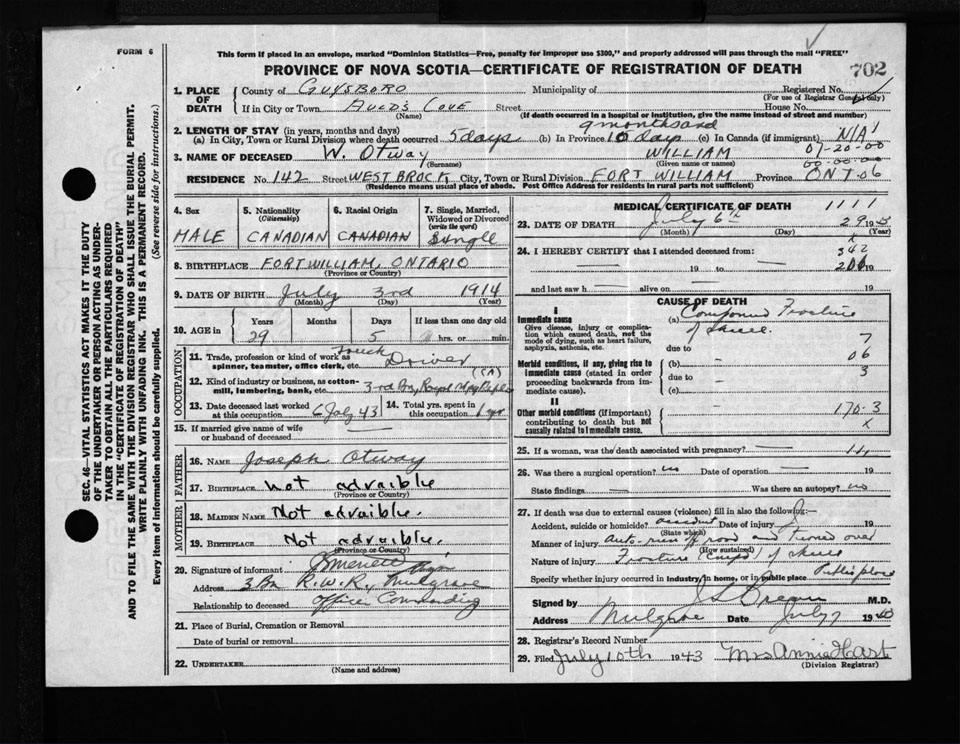 FORM 6
This form if placed in an envelope, marked "Dominion Statistics—Free, penalty for improper use $300," and properly addressed will pass through the mail "FREE"
PROVINCE OF NOVA SCOTIA—CERTIFICATE OF REGISTRATION OF DEATH
702
1. PLACE OF DEATH
County of GUYSBORO Municipality of Registered No.
(For use of Registrar General only)
If in City or Town AULD'S COVE Street House No.
(Name) (If death occurred in a hospital or institution, give the name instead of street and number)
2. LENGTH OF STAY (in years, months and days) 9 months and
(a) In City, Town or Rural Division where death occurred 5 days (b) In Province 10 days (c) In Canada (if immigrant) N/A
3. NAME OF DECEASED W. Otway WILLIAM 07-20-00
(Surname) (Given name or names) 00-00-00
RESIDENCE No. 142 Street WEST BROCK City, Town or Rural Division FORT WILLIAM Province ONT. 06
(Residence means usual place of abode. Post Office Address for residents in rural parts not sufficient)
4. Sex
MALE
5. Nationality
(Citizenship)
CANADIAN
6. Racial Origin
CANADIAN
7. Single, Married, Widowed or Divorced
(write the word)
Single
8. BIRTHPLACE FORT WILLIAM, ONTARIO
(Province or Country)
9. DATE OF BIRTH July 3rd 1914
(Month) (Day) (Year)
10. AGE in
Years Months Days If less than one day old
29 5 hrs. or min.
OCCUPATION
11. Trade, profession or kind of work as spinner, teamster, office clerk, etc. Truck Driver
(CA)
12. Kind of industry or business, as cotton-mill, lumbering, bank, etc. 3rd Royal
13. Date deceased last worked at this occupation 6 July 43
14. Total yrs. spent in this occupation 1 yr
15. If married give name of wife or husband of deceased —
FATHER
16. NAME Joseph Otway
17. BIRTHPLACE not advaible
(Province or Country)
MOTHER
18. MAIDEN NAME Not advaible.
19. BIRTHPLACE Not advaible.
(Province or Country)
20. Signature of informant
Address 3 Bn R.W.R, Mulgrave
Relationship to deceased Officer Commanding
21. Place of Burial, Cremation or Removal
Date of burial or removal
22. UNDERTAKER
(Name and address)
MEDICAL CERTIFICATE OF DEATH 1111
23. DATE OF DEATH July 6th 29 1943
(Month) (Day) (Year)
x
24. I HEREBY CERTIFY that I attended deceased from: 342
— 19 to — 206 19
and last saw h — alive on — 19
CAUSE OF DEATH
I
Immediate cause
Give disease, injury or complication which caused death, not the mode of dying, such as heart failure, asphyxia, asthenia, etc.
(a) Compound Fracture of Skull.
due to 7
Morbid conditions, if any, giving rise to immediate cause (stated in order proceeding backwards from immediate cause).
(b) — 06
due to — 3
(c) —
II
Other morbid conditions (if important) contributing to death but not causally related to immediate cause.
170-3
x
25. If a woman, was the death associated with pregnancy? — 11,
26. Was there a surgical operation? no Date of operation — 19
State findings — Was there an autopsy? no
27. If death was due to external causes (violence) fill in also the following:—
Accident, suicide or homicide? accident Date of injury 19
(State which)
Manner of injury auto-ran off road and turned over
(How sustained)
Nature of injury Fracture (Comp'd) of Skull
Specify whether injury occurred in industry, in home, or in public place Public place
Signed by M.D.
Address Mulgrave Date July 7 1943
28. Registrar's Record Number
29. Filed July 10th 1943 Mrs Annie Hart
(Division Registrar)
SEC. 46—VITAL STATISTICS ACT MAKES IT THE DUTY
OF THE UNDERTAKER OR PERSON ACTING AS UNDER-
TAKER TO OBTAIN ALL THE PARTICULARS REQUIRED
IN THE "CERTIFICATE OF REGISTRATION OF DEATH"
AND TO FILE THE SAME WITH THE DIVISION REGISTRAR WHO SHALL ISSUE THE BURIAL PERMIT.
WRITE PLAINLY WITH UNFADING INK. THIS IS A PERMANENT RECORD.
Every item of information should be carefully supplied. (See reverse side for instructions.)